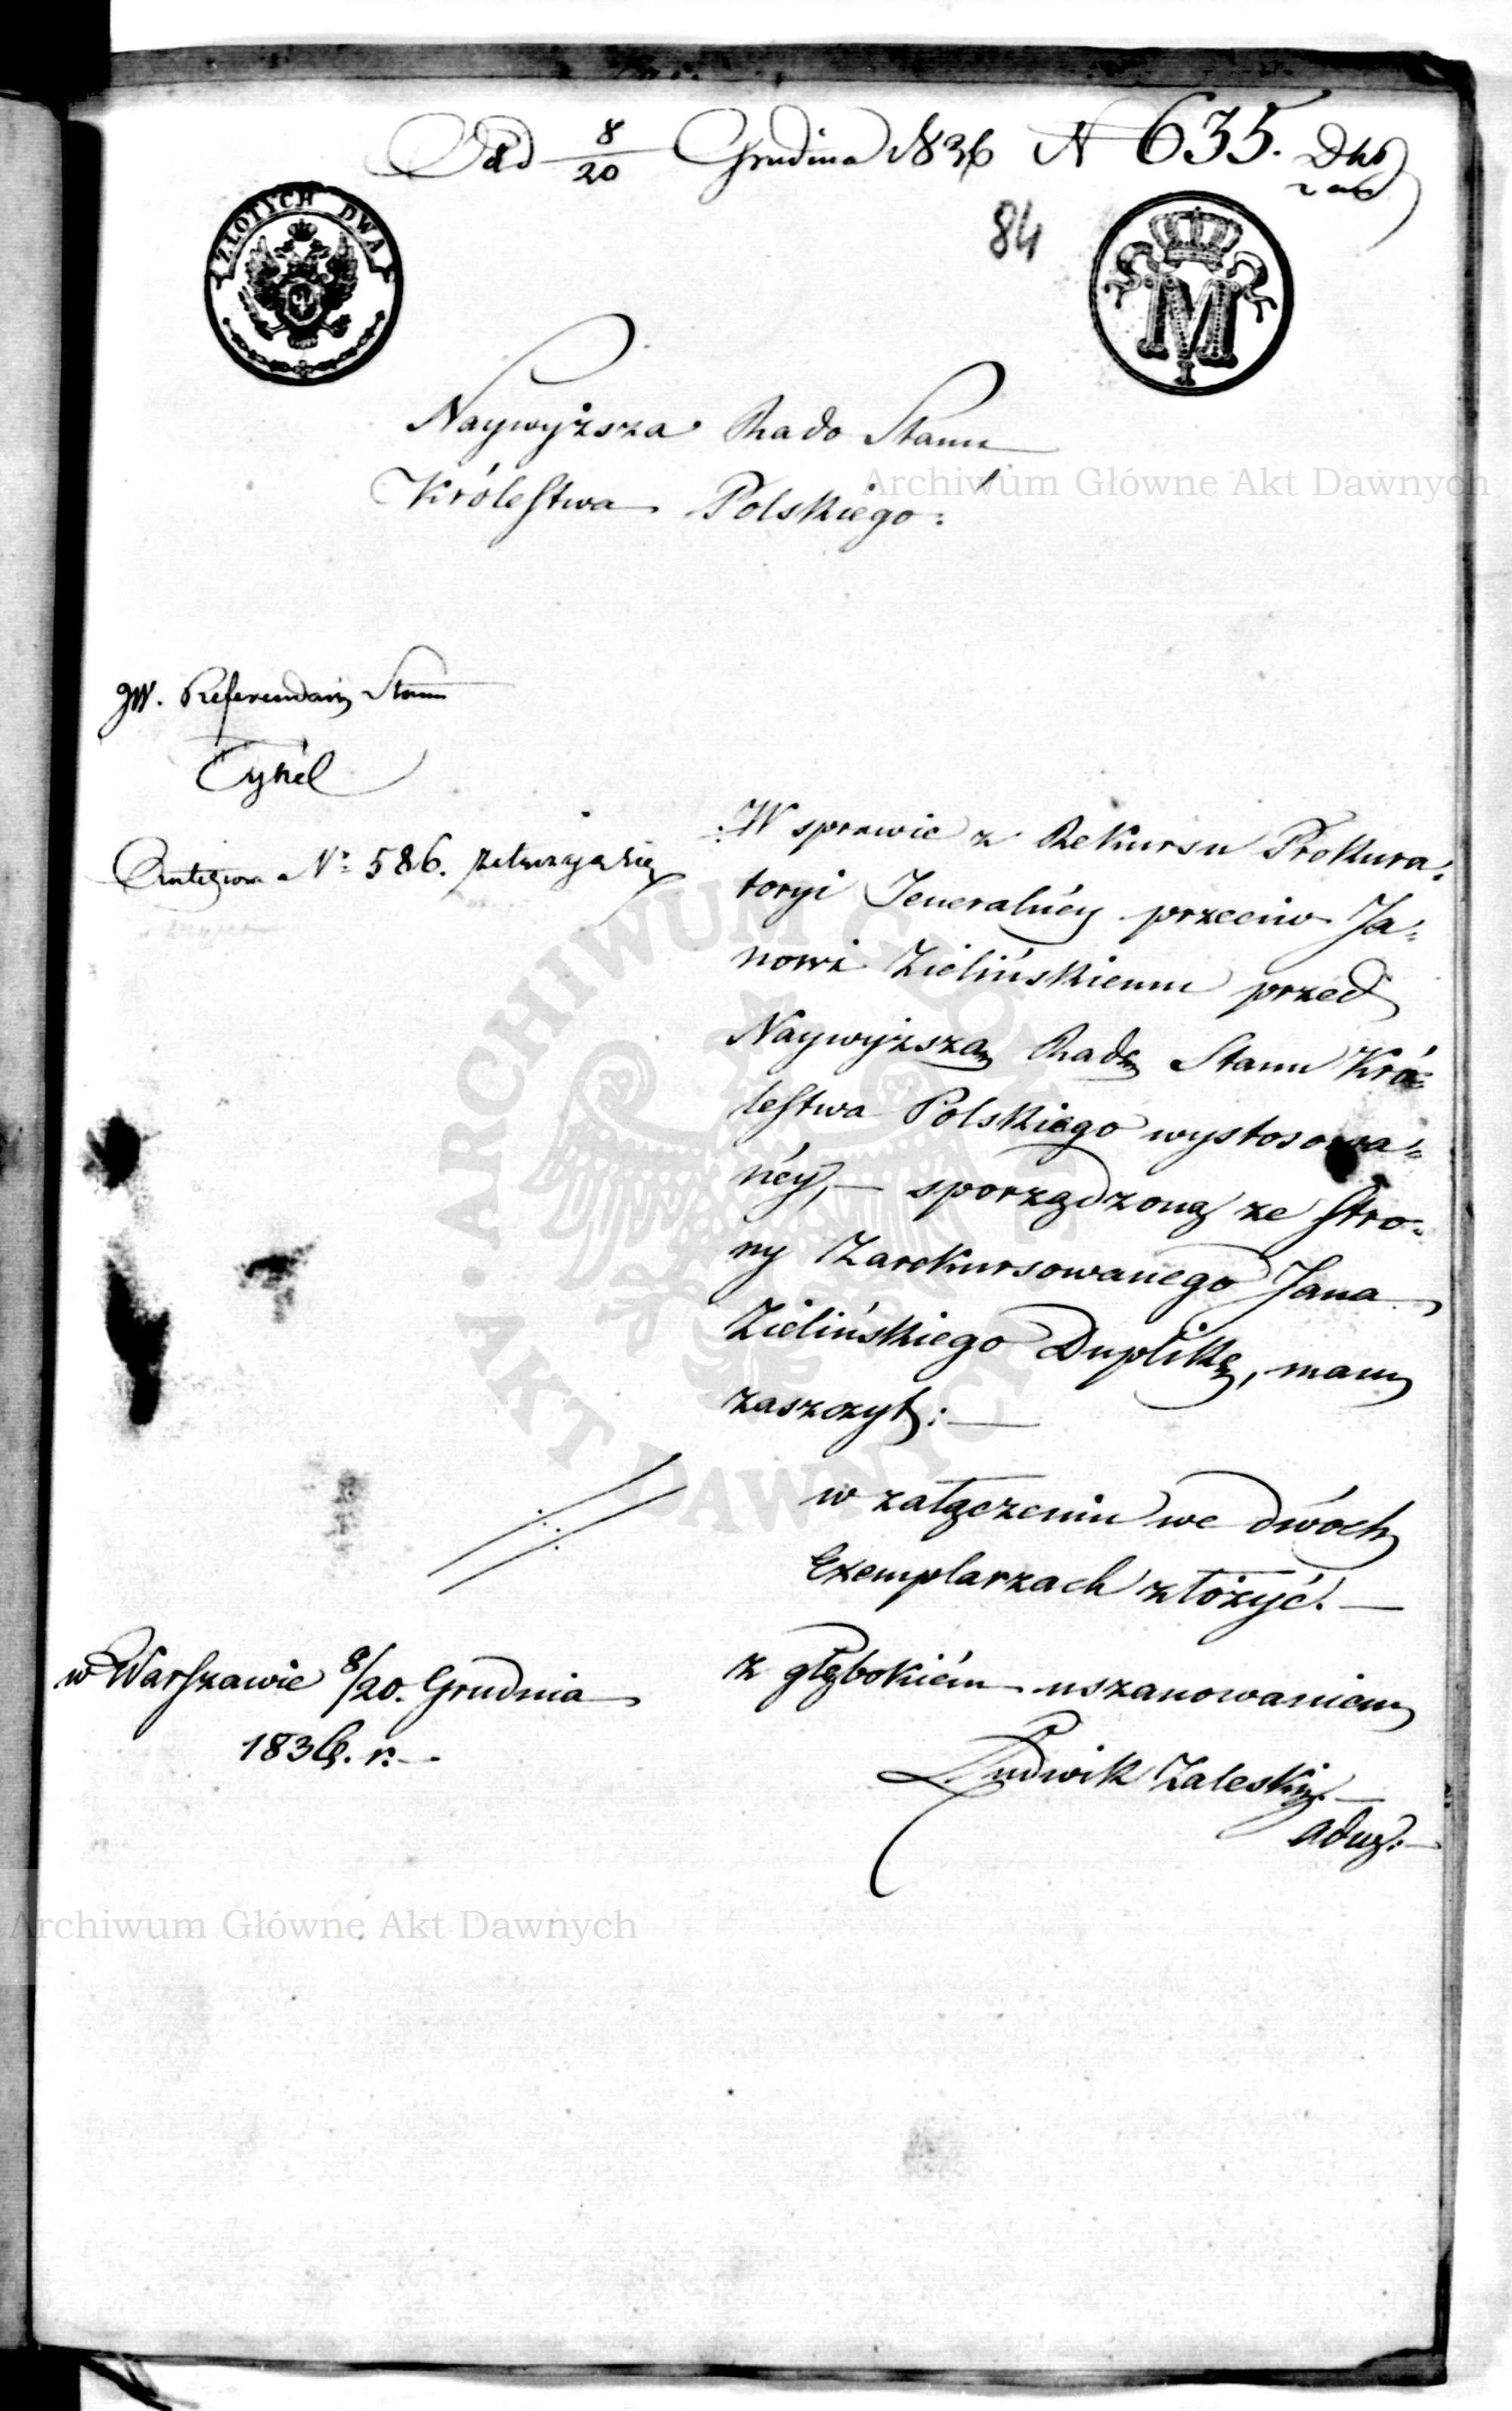 8/20 Grudnia 1836 N 635.
84
ZŁOTYCH DWA
M
I
Naywyższa Rado Stanu
Królestwa Polskiego:
Archiwum Główne Akt Dawnych
JW. Referendarz Stanu
Tykel
N° 586. załącza się
W sprawie z Rekursu Prokura:
toryi Jeneralnéy przeciw Ja:
nowi Zielińskiemu przed
Naywyższą Radę Stanu Kró:
lestwa Polskiego wystosowa:
néy, — sporządzoną ze stro:
ny Zarekursowanego Jana
Zielińskiego Duplikę, mam
zaszczyt: —
w załączeniu we dwóch
Exemplarzach złożyć. —
w Warszawie 8/20. Grudnia
1836. r. —
z głębokiém uszanowaniem
Ludwik Zaleski. —
adw: —
ARCHIWUM GŁÓWNE AKT DAWNYCH
Archiwum Główne Akt Dawnych